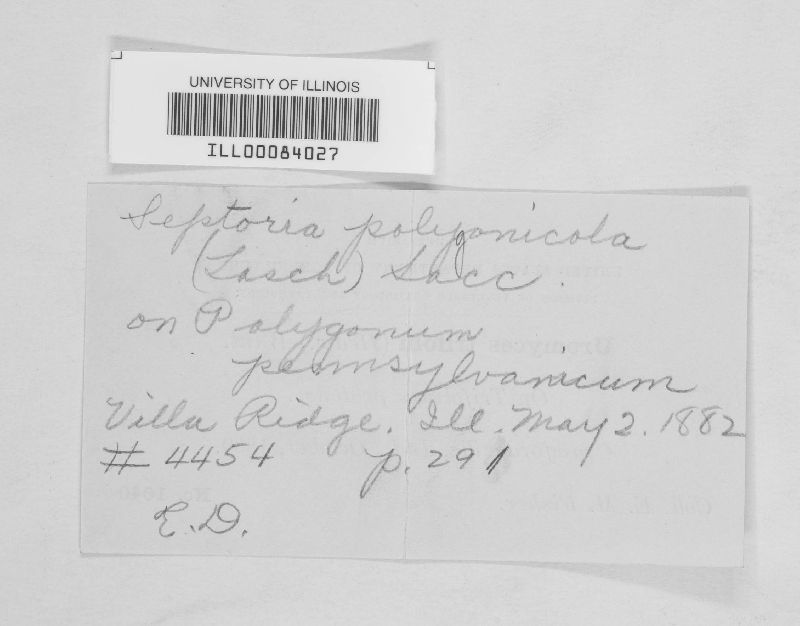 UNIVERSITY OF ILLINOIS
ILL00084027
Septoria polygonicola
(Lasch) Sacc.
on Polygonum
pennsylvanicum
Villa Ridge. Ill. May 2. 1882
# 4454 p. 291
E.D.